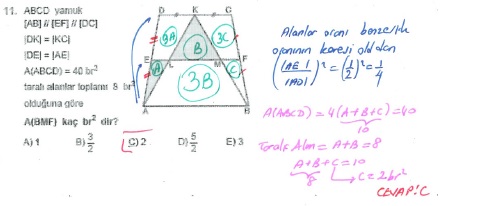 11. ABCD yamuk
[AB] // [EF] // [DC]
|DK| = |KC|
|DE| = |AE|
A(ABCD) = 40 br²
taralı alanlar toplamı 8 br²
olduğuna göre
A(BMF) kaç br² dir?
A) 1 B) 3/2 C) 2 D) 5/2 E) 3
D K C
3A 3C
B
E A L M C F
3B
A B
Alanlar oranı benzerlik
oranının karesi olduğundan
(|AE|/|AD|)² = (1/2)² = 1/4
A(ABCD) = 4(A+B+C) = 40
10
Taralı Alan = A+B = 8
A+B+C = 10
8 C = 2br²
CEVAP: C